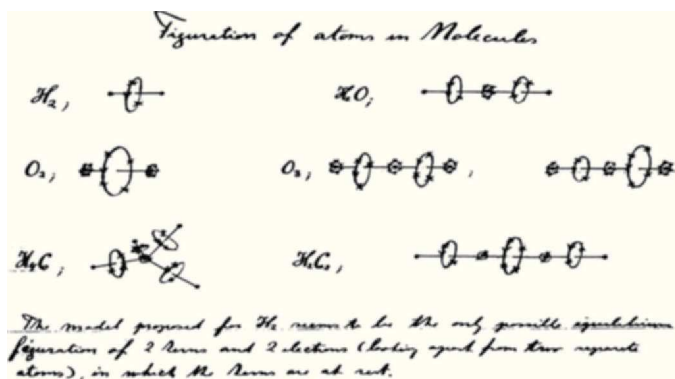 Figuration of atoms in Molecules
H₂,
HO;
O₂,
O₃,
H₄C;
H₂C₂,
The model proposed for H₂ seems to be the only possible equilibrium
figuration of 2 kerns and 2 electrons (looking apart from two separate
atoms), in which the kerns are at rest.